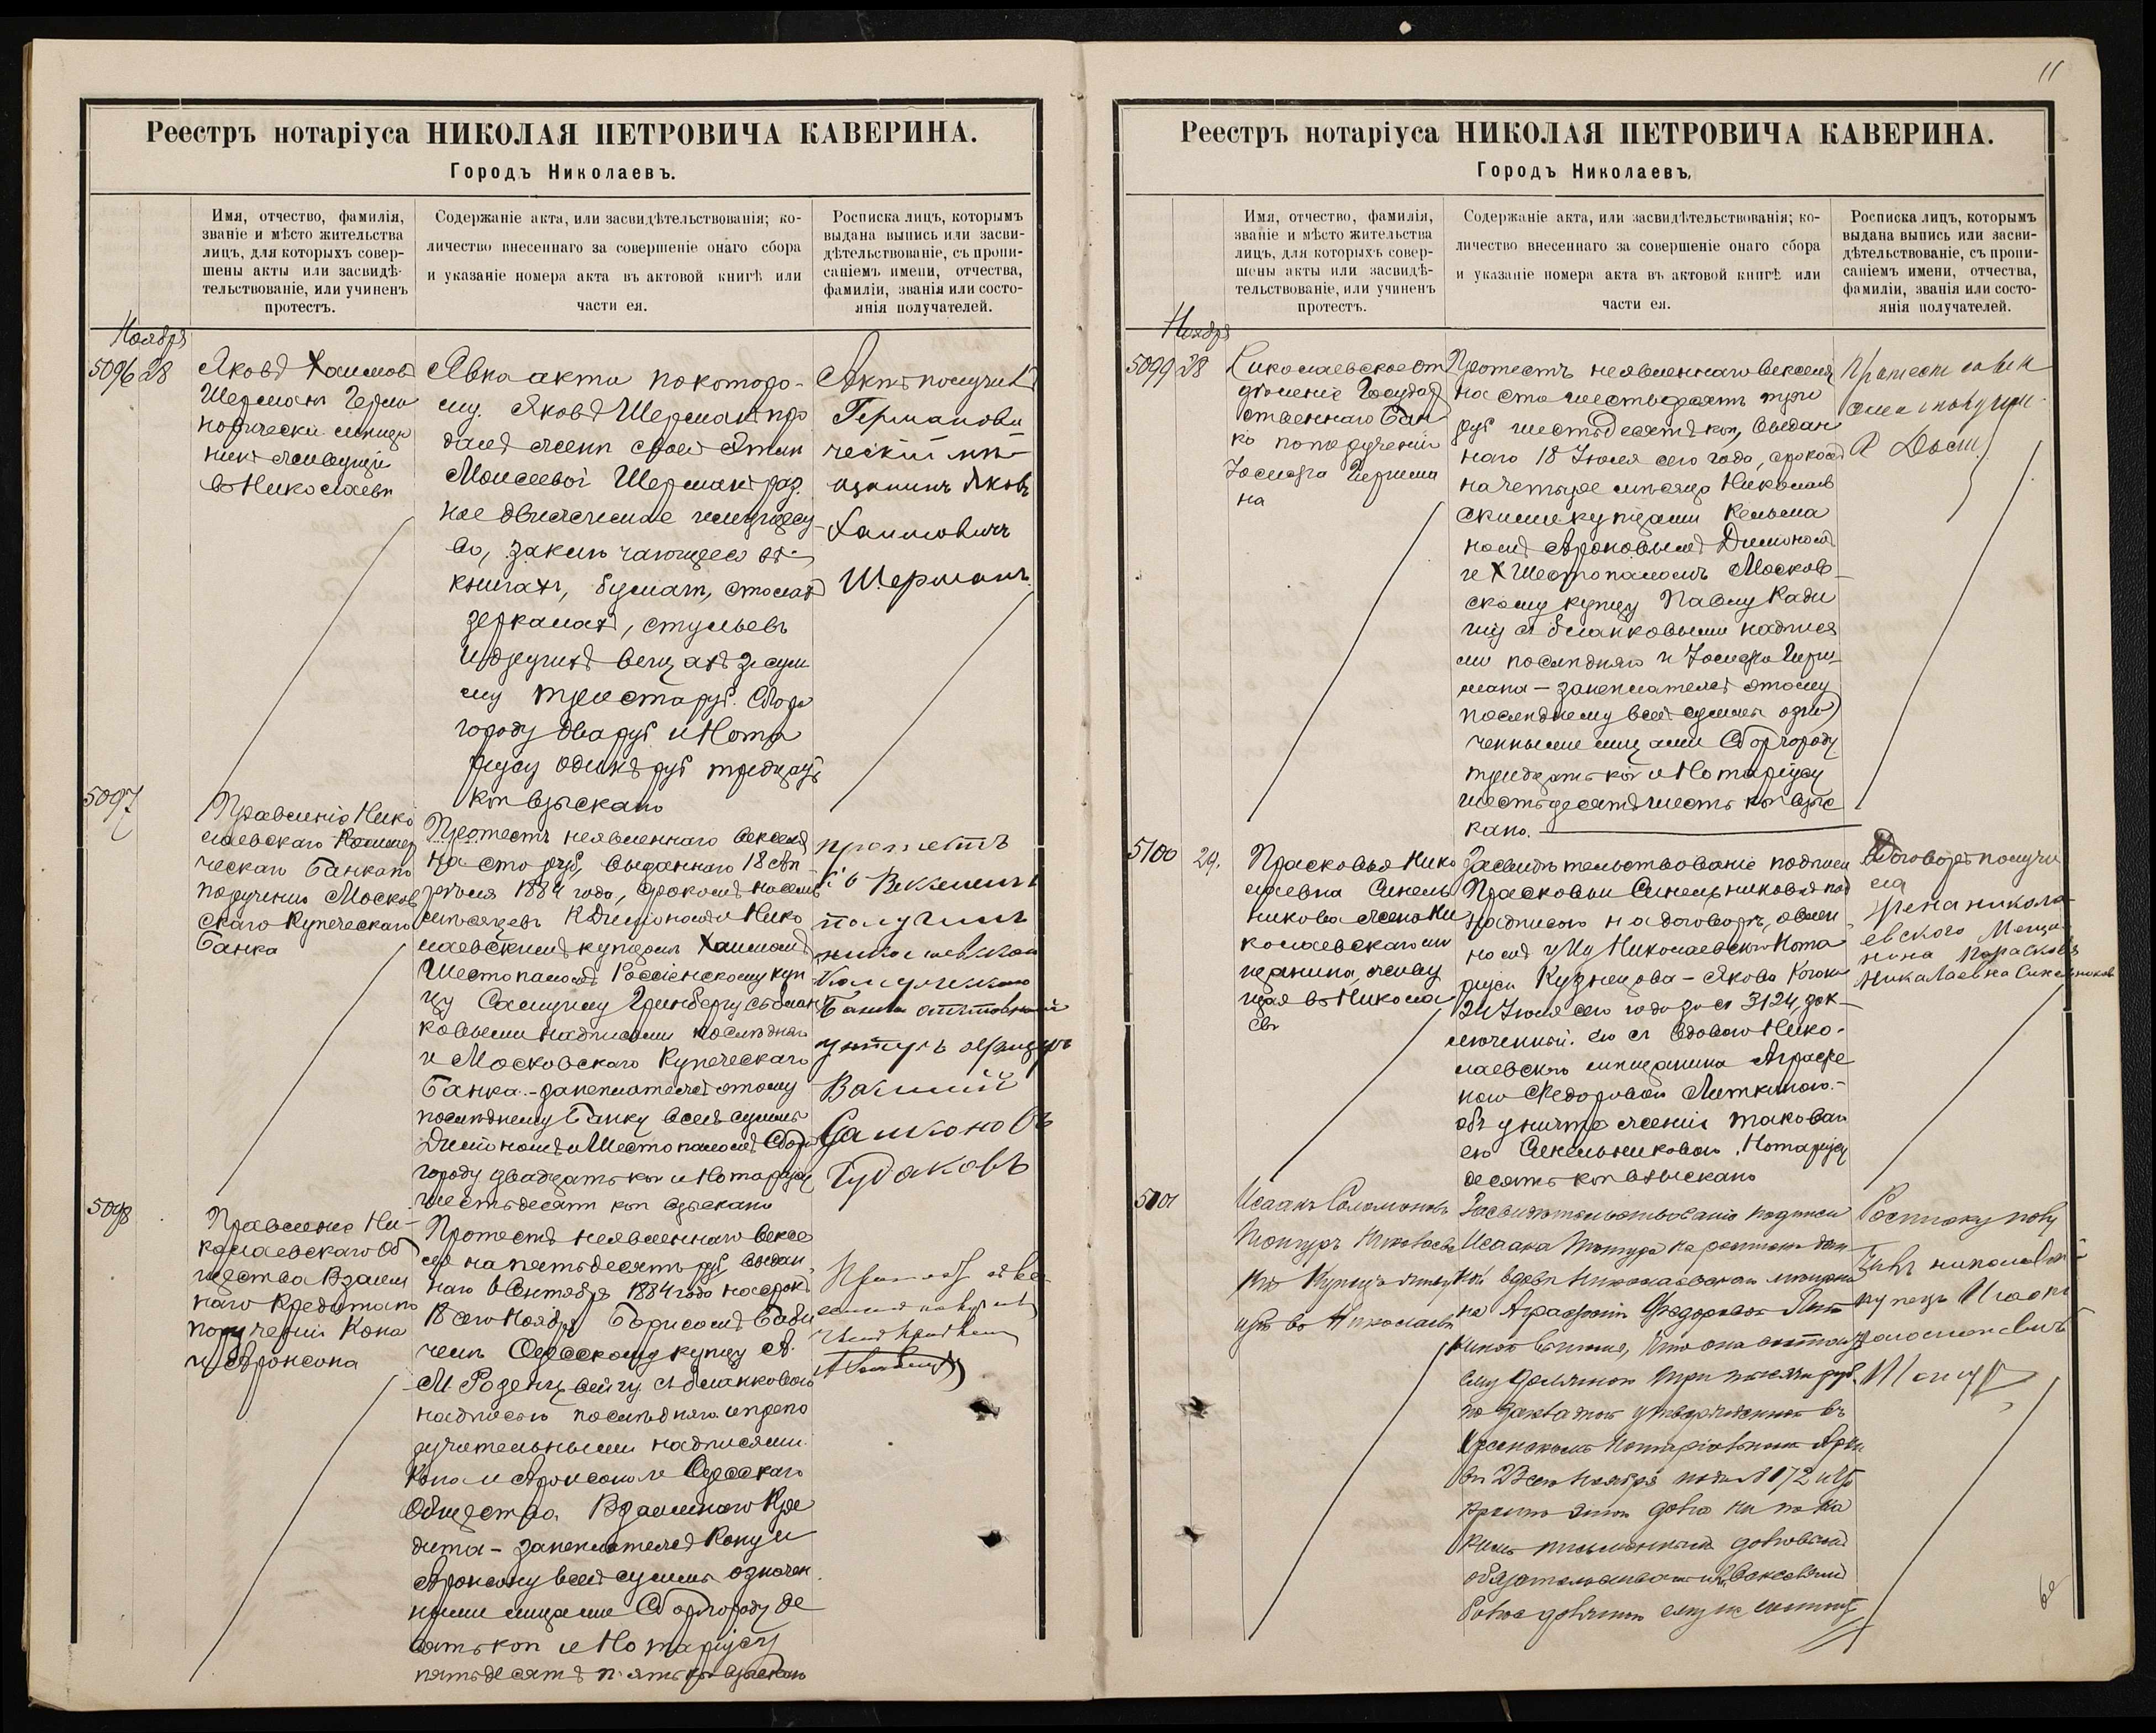 Реестръ нотаріуса НИКОЛАЯ ПЕТРОВИЧА КАВЕРИНА.
Городъ Николаевъ.
Имя, отчество, фамилія,
званіе и мѣсто жительства
лицъ, для которыхъ совер-
шены акты или засвидѣ-
тельствованіе, или учиненъ
протестъ.
Содержаніе акта, или засвидѣтельствованія; ко-
личество внесеннаго за совершеніе онаго сбора
и указаніе номера акта въ актовой книгѣ или
части ея.
Росписка лицъ, которымъ
выдана выпись или засви-
дѣтельствованіе, съ пропи-
саніемъ имени, отчества,
фамиліи, званія или состо-
янія получателей.
Ноября
5096 28
Яковъ Хаимовъ
Шерманъ
живущій
въ Николаевѣ
Явка акта по которо-
му Яковъ Шерманъ про
далъ женѣ своей
Моисеевой Шерманъ раз
ное движимое имущес
во, заключающееся въ
книгахъ, бумагѣ, столахъ
зеркалахъ, стульевъ
и другихъ вещахъ за сум
му триста руб. Сбора
городу два руб и Нота
ріусу одинъ руб тридцать
коп взыскано
Актъ получилъ
Германови
ческій мѣ-
щанинъ Яковъ
Хаимовичъ
Шерманъ
5097
Правленіе Нико
лаевскаго Коммер
ческаго Банка по
порученію Москов
скаго Купеческаго
Банка
Протестъ неявленнаго векселя
на сто руб, выданнаго 18 ап
рѣля 1884 года, срокомъ на семь
мѣсяцевъ К. Димономъ и Нико
лаевскимъ купцомъ Хаимомъ
Шестопаломъ Россіенскому куп
цу Самуилу Гринбергу съ блан
ковыми надписями послѣдняго
и Московскаго Купеческаго
Банка - занеплатежъ этому
послѣднему Банку всей суммы
Димономъ и Шестопаломъ Сбора
городу двадцать коп и Нотаріусу
шестьдесятъ коп взыскано
протестъ
съ Векселемъ
получилъ
Банка
Василій
Самсоновъ
Гудаковъ
5098
Правленіе Ни-
колаевскаго Об
щества Взаим
наго Кредита по
порученію Кона
и Аронсона
Протестъ неявленнаго вексе
ля на пятьдесятъ руб, выдан
наго 6 Сентября 1884 года на срокъ
18 сего Ноября Борисомъ Баби
чемъ Одесскому купцу А.
М. Розенцвейгу съ бланковою
надписью послѣдняго и препо
ручительными надписями
Кона и Аронсона и Одесскаго
Общества Взаимнаго Кре
дита - занеплатежъ Кону и
Аронсону всей суммы означен
ными лицами Сбора городу де
сять коп и Нотаріусу
пятьдесятъ пять коп взыскано
11
Реестръ нотаріуса НИКОЛАЯ ПЕТРОВИЧА КАВЕРИНА.
Городъ Николаевъ.
Имя, отчество, фамилія,
званіе и мѣсто жительства
лицъ, для которыхъ совер-
шены акты или засвидѣ-
тельствованіе, или учиненъ
протестъ.
Содержаніе акта, или засвидѣтельствованія; ко-
личество внесеннаго за совершеніе онаго сбора
и указаніе номера акта въ актовой книгѣ или
части ея.
Росписка лицъ, которымъ
выдана выпись или засви-
дѣтельствованіе, съ пропи-
саніемъ имени, отчества,
фамиліи, званія или состо-
янія получателей.
Ноября
5099 28
Николаевское От
дѣленіе Государ
ственнаго Бан
ка по порученію
Іосифа Гиршма
на
Протестъ неявленнаго векселя
на сто шестьдесятъ три
руб шестьдесятъ коп, выдан
наго 18 Іюля сего года, срокомъ
на четыре мѣсяца Николаев
скими купцами Кельма
номъ Ароновымъ Димономъ
и Х Шестопаломъ Москов-
скому купцу Павлу Кади
шу съ бланковыми надпися
ми послѣдняго и Іосифа Гирш
мана - занеплатежъ этому
послѣднему всей суммы озна
ченными лицами Сбора городу
тридцать коп и Нотаріусу
шестьдесятъ шесть коп взыс
кано.
5100 29.
Прасковья Нико
лаевна Синель
никова жена Ни
колаевскаго мѣ
щанина, живу
щая въ Никола
евѣ
Засвидѣтельствованіе подписи
Прасковьи Синельниковой под
надписью на договорѣ, явлен
номъ у Николаевскаго Нота
ріуса Кузнецова -
24 Іюля сего года за № 3124, зак-
люченный ею съ вдовою Нико-
лаевскаго мѣщанина Аграфе
ною Федоровой Литкиною-
объ уничтоженіи таковаго
ею Синельниковою. Нотаріусу
десять коп взыскано
Договоръ получи
ла
жена Никола-
евского Меща
нина Параскова
Никалаевна Синельникова
5101
Исаакъ Соломоновъ
Николаевс
кій Купецъ живу
щій въ Николаевѣ
Засвидѣтельствованіе подписи
Исаака
вдовѣ Николаевскаго мѣщани
на Аграфенѣ Федоровой
что она
ему должна три тысячи руб.
по закладной утвержденной въ
Херсонскомъ Нотаріальномъ Архи
вѣ 23 сего Ноября
кромѣ этого долга ни по ка
кимъ письменнымъ долговымъ
обязательствамъ и векселямъ
Росписку полу
чилъ николаевскій
купецъ Исаакъ